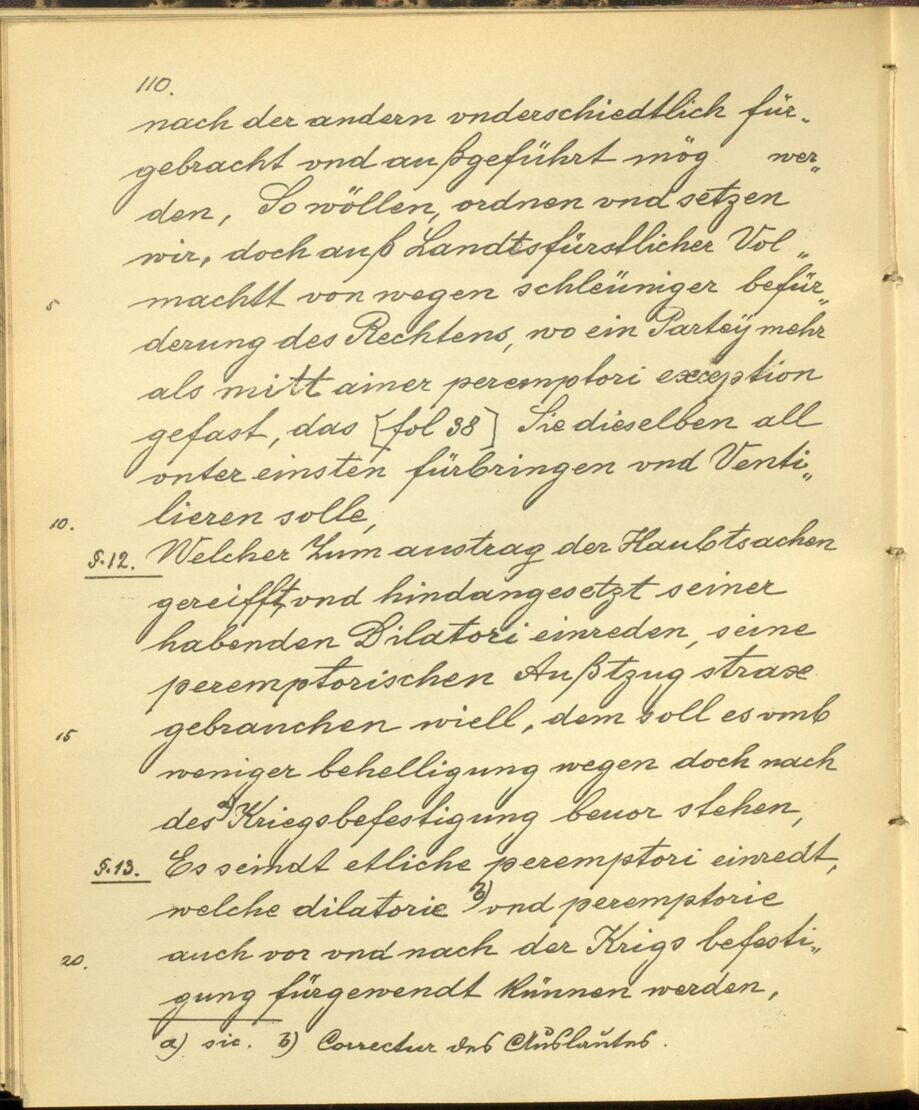 110.
nach der andern vnderschiedtlich für„
gebracht vnd außgeführt mög wer„
den, So wöllen, ordnen vnd setzen
wir, doch auß Landtsfürstlicher Vol„
5 machtt von wegen schleüniger befür„
derung des Rechtens, wo ein Parteÿ mehr
als mitt ainer peremptori exception
gefast, das [fol 38] Sie dieselben all
vnter einsten fürbringen vnd Venti„
10. lieren solle,
§.12. Welcher Zum austrag der Haubtsachen
gereifft, vnd hindangesetzt seiner
habenden Dilatori einreden, seine
peremptorischen Außtzug straxe
15 gebrauchen wiell, dem soll es vmb
weniger behelligung wegen doch nach
des a) Kriegsbefestigung beuor stehen,
§.13. Es seindt etliche peremptori einredt,
welche dilatorie b) vnd peremptorie
20. auch vor vnd nach der Krigs befesti„
gung fürgewendt künnen werden,
a) sic. b) Correctur des Auslautes.